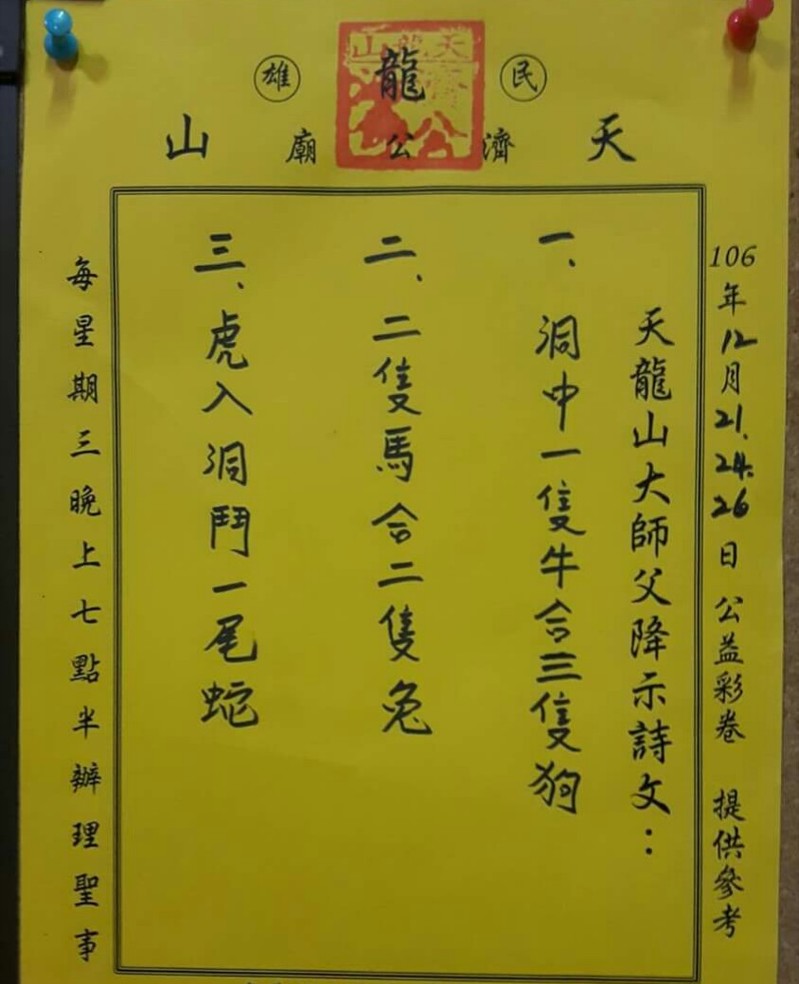 天龍山
民 龍 雄
天 濟 公 廟 山
106年12月21.24.26日 公益彩卷 提供參考
天龍山大師父降示詩文：
一、洞中一隻牛合三隻狗
二、二隻馬合二隻兔
三、虎入洞鬥一尾蛇
每星期三晚上七點半辦理聖事